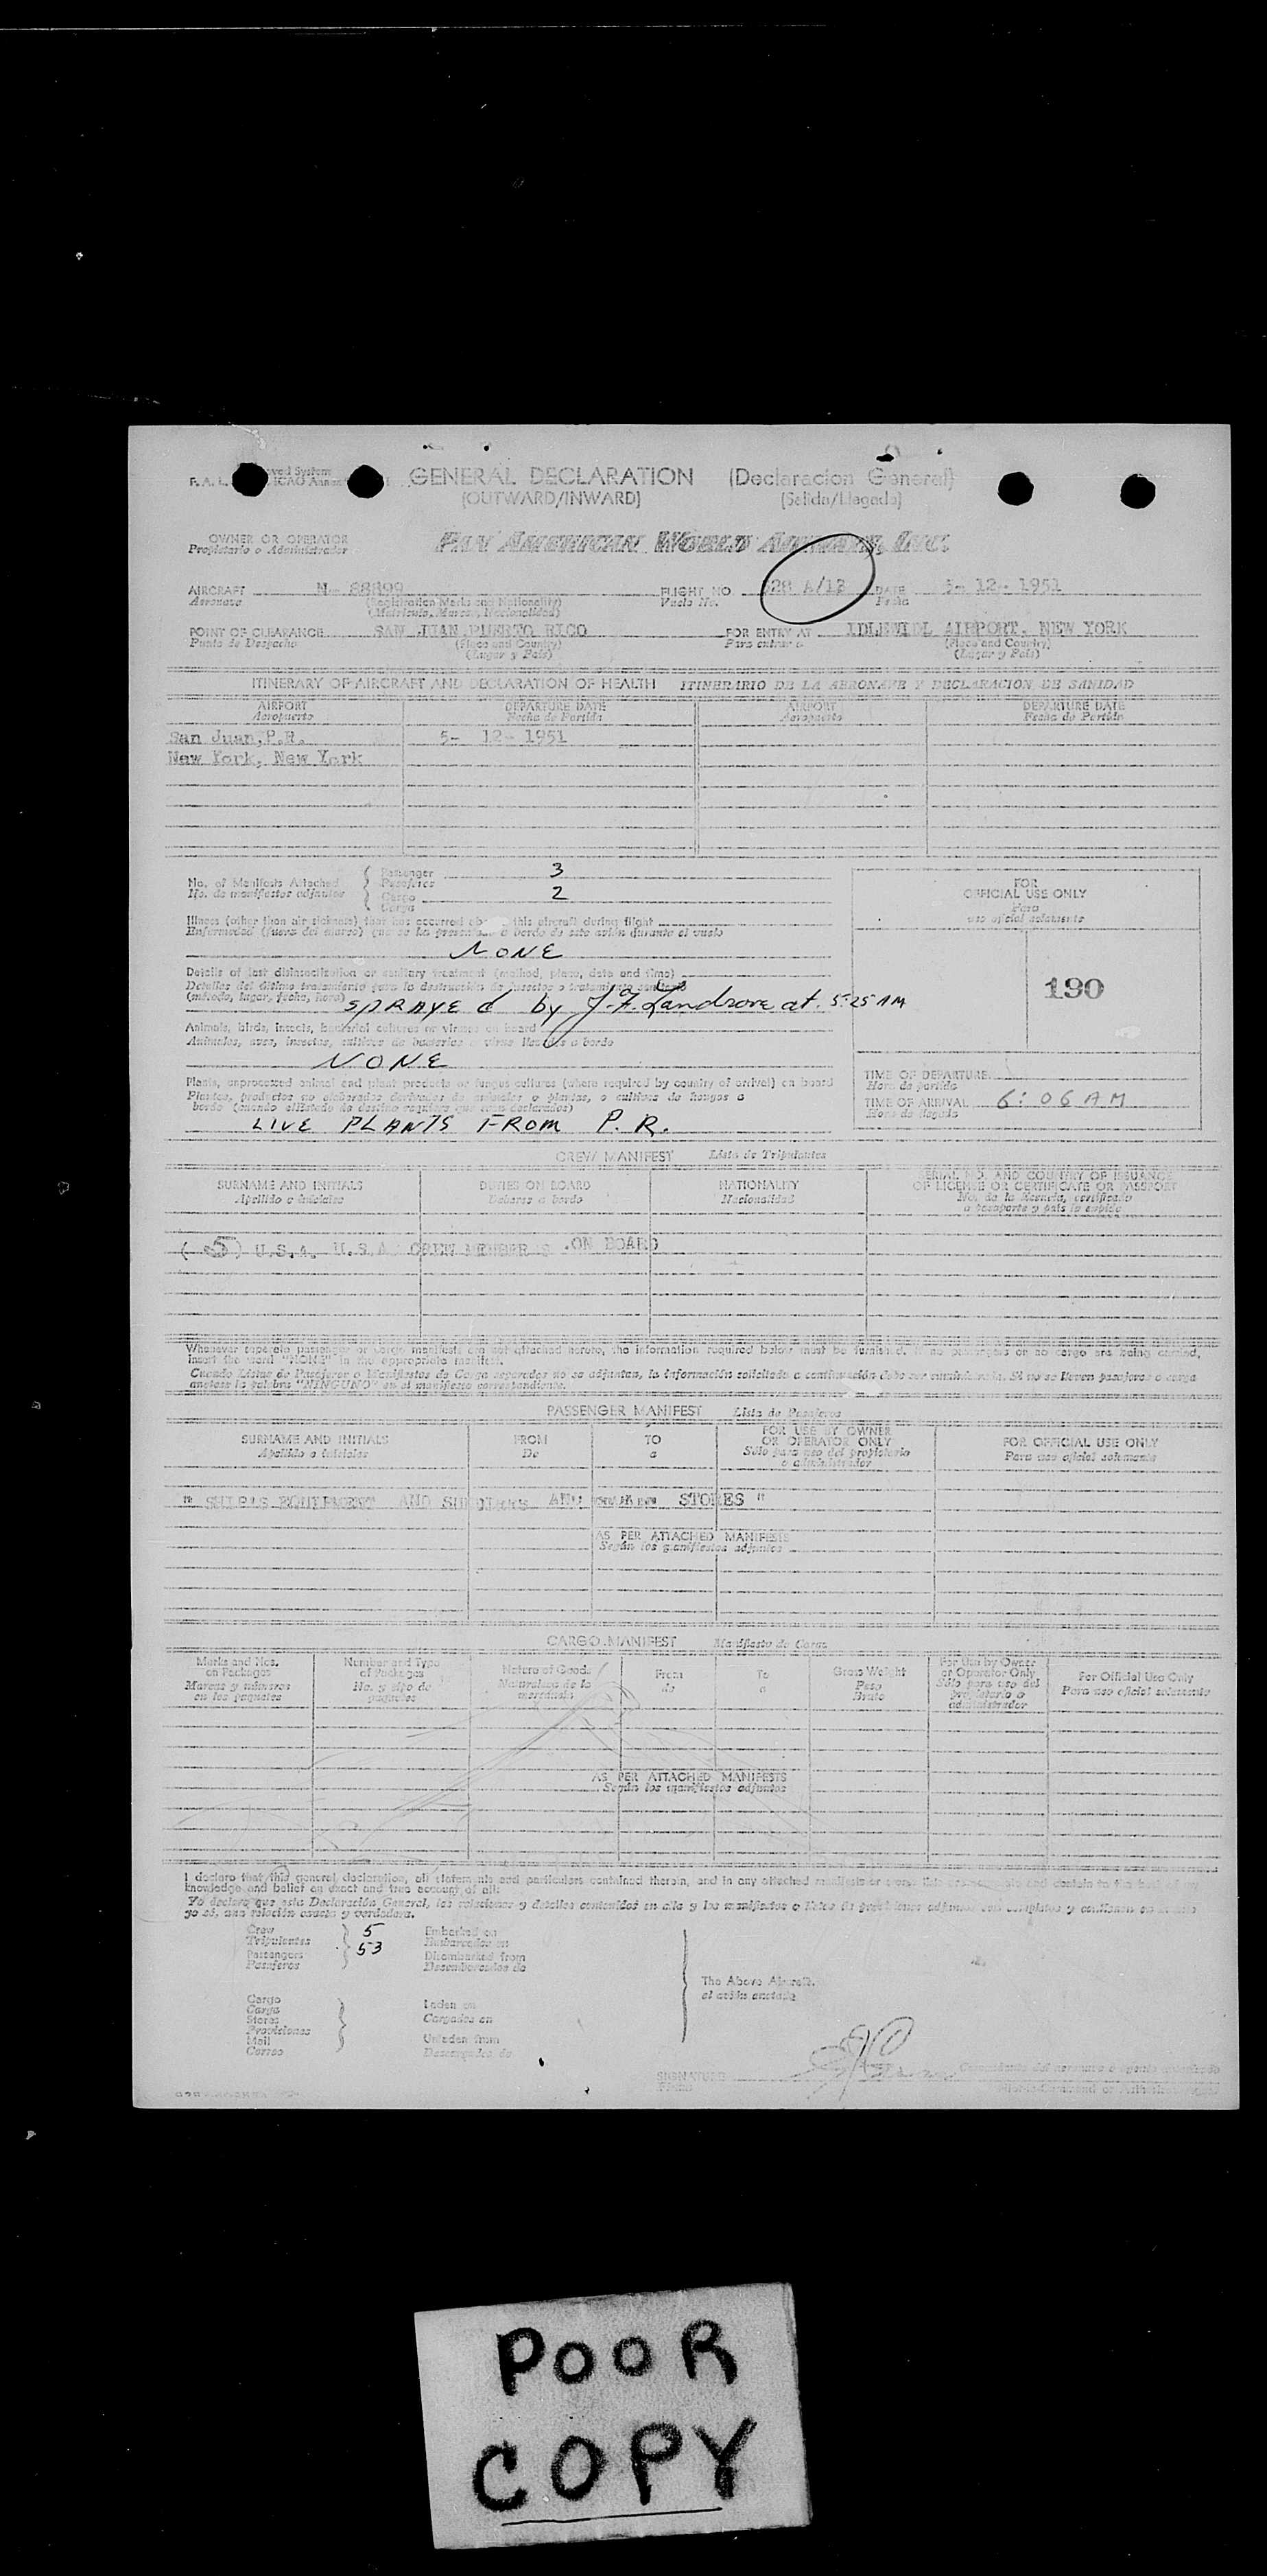 GENERAL DECLARATION (Declaracion General)
(OUTWARD/INWARD) (Salida/Llegada)
OWNER OR OPERATOR
Propietario o Administrador
PAN AMERICAN WORLD AIRWAYS, INC.
AIRCRAFT N- 88899 FLIGHT NO 528 A/12 DATE 5- 12- 1951
Aeronave (Registration Marks and Nationality) Vuelo No. Fecha
(Matricula, Marcas, Nacionalidad)
POINT OF CLEARANCE SAN JUAN PUERTO RICO FOR ENTRY AT IDLEWIDL AIRPORT. NEW YORK
Punto de Despacho (Place and Country) Para entrar a (Place and Country)
(Lugar y Pais) (Lugar y Pais)
ITINERARY OF AIRCRAFT AND DECLARATION OF HEALTH ITINERARIO DE LA AERONAVE Y DECLARACION DE SANIDAD
AIRPORT DEPARTURE DATE AIRPORT DEPARTURE DATE
Aeropuerto Fecha de Partida Aeropuerto Fecha de Partida
San Juan,P.R. 5- 12- 1951
New York, New York
No. of Manifests Attached Passenger 3
No. de manifiestos adjuntos Pasajeros
Cargo 2
Carga
Illness (other than air sickness) that has occurred this aircraft during flight
Enfermedad (fuera del mareo) que se ha a bordo de este avión durante el vuelo
NONE
Details of last disinsectization or sanitary treatment (method, place, date and time)
Detalles del último tratamiento para la destrucción de insectos o tratamiento
(método, lugar, fecha, hora)
SPRAYEd by J.F. Landrove at 5:25 AM
Animals, birds, insects, bacterial cultures or viruses on board
Animales, aves, insectos, cultivos de bacterias o virus a bordo
NONE
Plants, unprocessed animal and plant products or fungus cultures (where required by country of arrival) on board
Plantas, productos no elaborados derivados de animales o plantas, o cultivos de hongos a
bordo (cuando el Estado de destino requiera que sean declarados)
LIVE PLANTS FROM P. R.
FOR
OFFICIAL USE ONLY
Para
uso oficial solamente
190
TIME OF DEPARTURE
Hora de partida
TIME OF ARRIVAL 6:06 AM
Hora de llegada
CREW MANIFEST Lista de Tripulantes
SURNAME AND INITIALS DUTIES ON BOARD NATIONALITY SERIAL NO. AND COUNTRY OF ISSUANCE
Apellido e iniciales Deberes a bordo Nacionalidad OF LICENSE OR CERTIFICATE OR PASSPORT
No. de la licencia, certificado
o pasaporte y pais lo expide
( 5 ) U.S.A. U.S.A. CREW MEMBER S .ON BOARD
Whenever separate passenger or cargo manifests are not attached hereto, the information required below must be furnished. If no passengers or no cargo are being carried,
insert the word "NONE" in the appropriate manifest.
Cuando Listas de Pasajeros o Manifiestos de Carga separados no se adjuntan, la información solicitada a continuación debe ser Si no se llevan pasajeros o carga
anótese la palabra "NINGUNO" en el manifiesto correspondiente.
PASSENGER MANIFEST Lista de Pasajeros
SURNAME AND INITIALS FROM TO FOR USE BY OWNER FOR OFFICIAL USE ONLY
Apellido e iniciales De a OR OPERATOR ONLY Para uso oficial solamente
Sólo para uso del propietario
o administrador
" SHIP'S EQUIPMENT AND AND STORES "
AS PER ATTACHED MANIFESTS
Según los manifiestos adjuntos
CARGO MANIFEST Manifiesto de Carga
Marks and Nos. Number and Type Nature of Goods From To Gross Weight For Use by Owner For Official Use Only
on Packages of Packages Naturaleza de la de a Peso or Operator Only Para uso oficial solamente
Marcas y números No. y tipo de mercancía Bruto Sólo para uso del
en los paquetes paquetes propietario o
administrador
AS PER ATTACHED MANIFESTS
Según los manifiestos adjuntos
I declare that this general declaration, all statements and particulars contained therein, and in any attached manifests
knowledge and belief an exact and true account of all.
Yo declaro que esta Declaración General, las relaciones y detalles contenidos en ella y los manifiestos o listas de
yo sé, una relación exacta y verdadera.
Crew 5 Embarked on
Tripulantes Embarcados en
Passengers 53 Disembarked from
Pasajeros Desembarcados de
The Above Aircraft.
el avión anotado
Cargo
Carga Laden on
Stores Cargados en
Provisiones
Mail Unladen from
Correo Descargados de
SIGNATURE
Firma
POOR
COPY